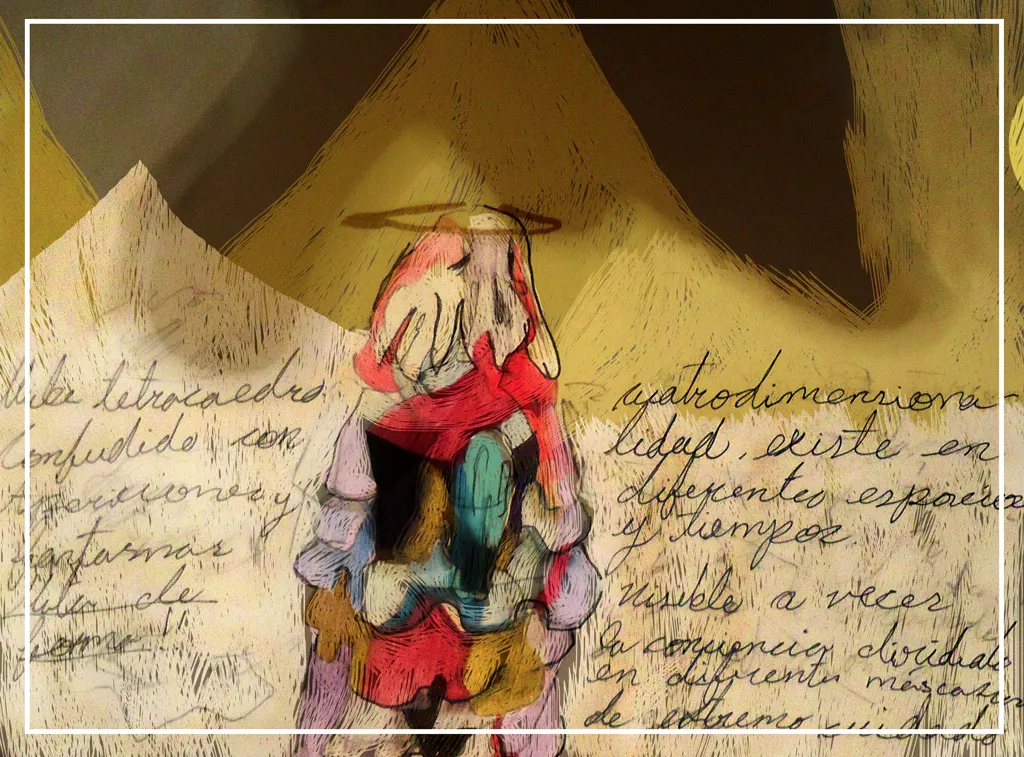 tetracaedro
Confudido con
apariciones y
fantasmas
de
cuatrodimensiona-
lidad, existe en
diferentes espacios
y tiempos
Visible a veces
la conciencia dividida
en diferentes máscaras
de extremo cuidado